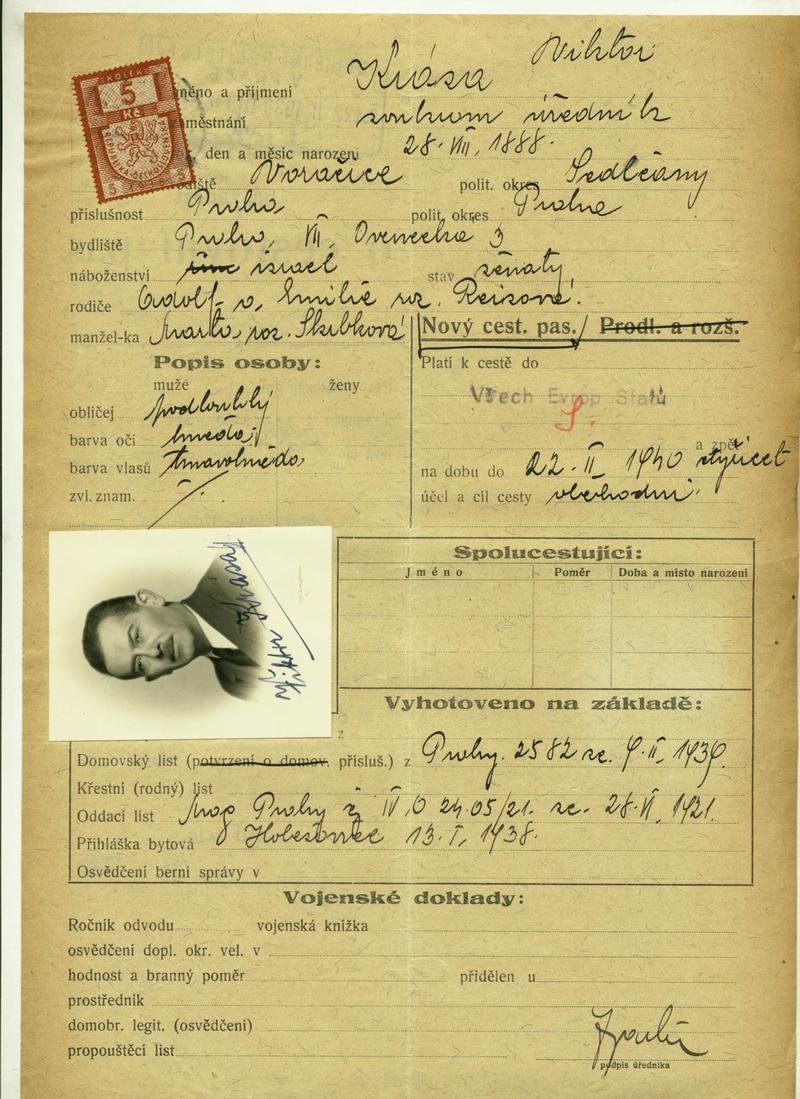 KOLEK
5
Kč
REPUBLIKA ČESKOSLOVENSKÁ
jméno a příjmení Krása Viktor
zaměstnání soukrom úředník
den a měsíc narození 28. VIII. 1888.
rodiště Voračice polit. okres Sedlčany
příslušnost Praha polit. okres Praha
bydliště Praha, VII, Ovenecká 3
náboženství israel stav ženatý
rodiče Adolf a Emilie roz. Reisová.
manžel-ka Marta roz. Skubková
Nový cest. pas. / Prodl. a rozš.
Popis osoby:
Platí k cestě do
muže ženy
Všech Evrop Států
obličej podlouhlý
S.
barva očí hnědá
a zpět
barva vlasů tmavohnědá
na dobu do 22. II. 1940 čtyřicet
zvl. znam.
účel a cíl cesty obchodní.
Spolucestující:
Jméno Poměr Doba a místo narození
Viktor Krása
Vyhotoveno na základě:
z
Domovský list (potvrzení o domov. přísluš.) z Prahy. 2582 ze 9. II. 1939.
Křestní (rodný) list
Oddací list Mag Prahy č IV, O 2405/21. ze 28. VI. 1921.
Přihláška bytová Holešovice 13. I. 1938.
Osvědčení berní správy v
Vojenské doklady:
Ročník odvodu vojenská knížka
osvědčení dopl. okr. vel. v
hodnost a branný poměr přidělen u
prostředník
domobr. legit. (osvědčení)
propouštěcí list
podpis úředníka